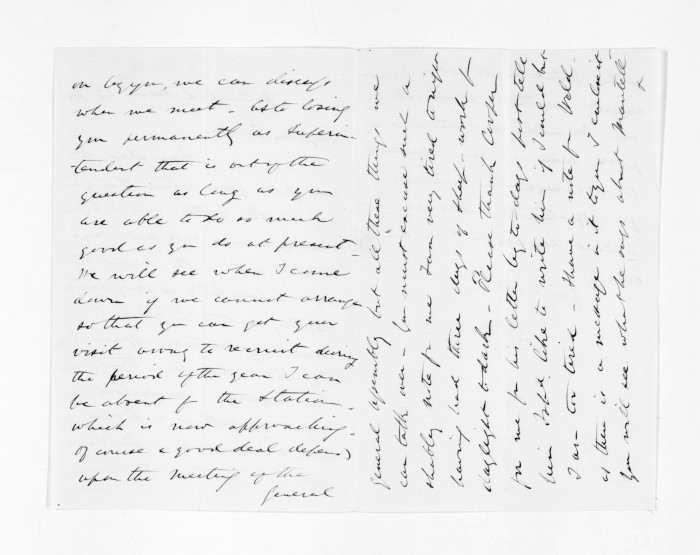 on by you, we can discuss
when we meet - As to losing
you permanently as Superin-
-tendent that is out of the
question as long as you
are able to do so much
good as you do at present -
We will see when I come
down if we cannot arrange
so that you can get your
visit away to recruit during
the period of the year I can
be absent f the Station -
which is now approaching.
Of course a good deal depends
upon the meeting of the
General
General Assembly but all these things we
can talk over - You must excuse such a
shabby note for me I am very tired tonight
having had three days of sheep work f
daylight to dark - Please thank Cooper
for me for his letter by to-days post tell
him I shd like to write him if I could but
I am too tired - I have a note f Weld -
as there is a message in it to you I enclose it
You will see what he says about Mantell